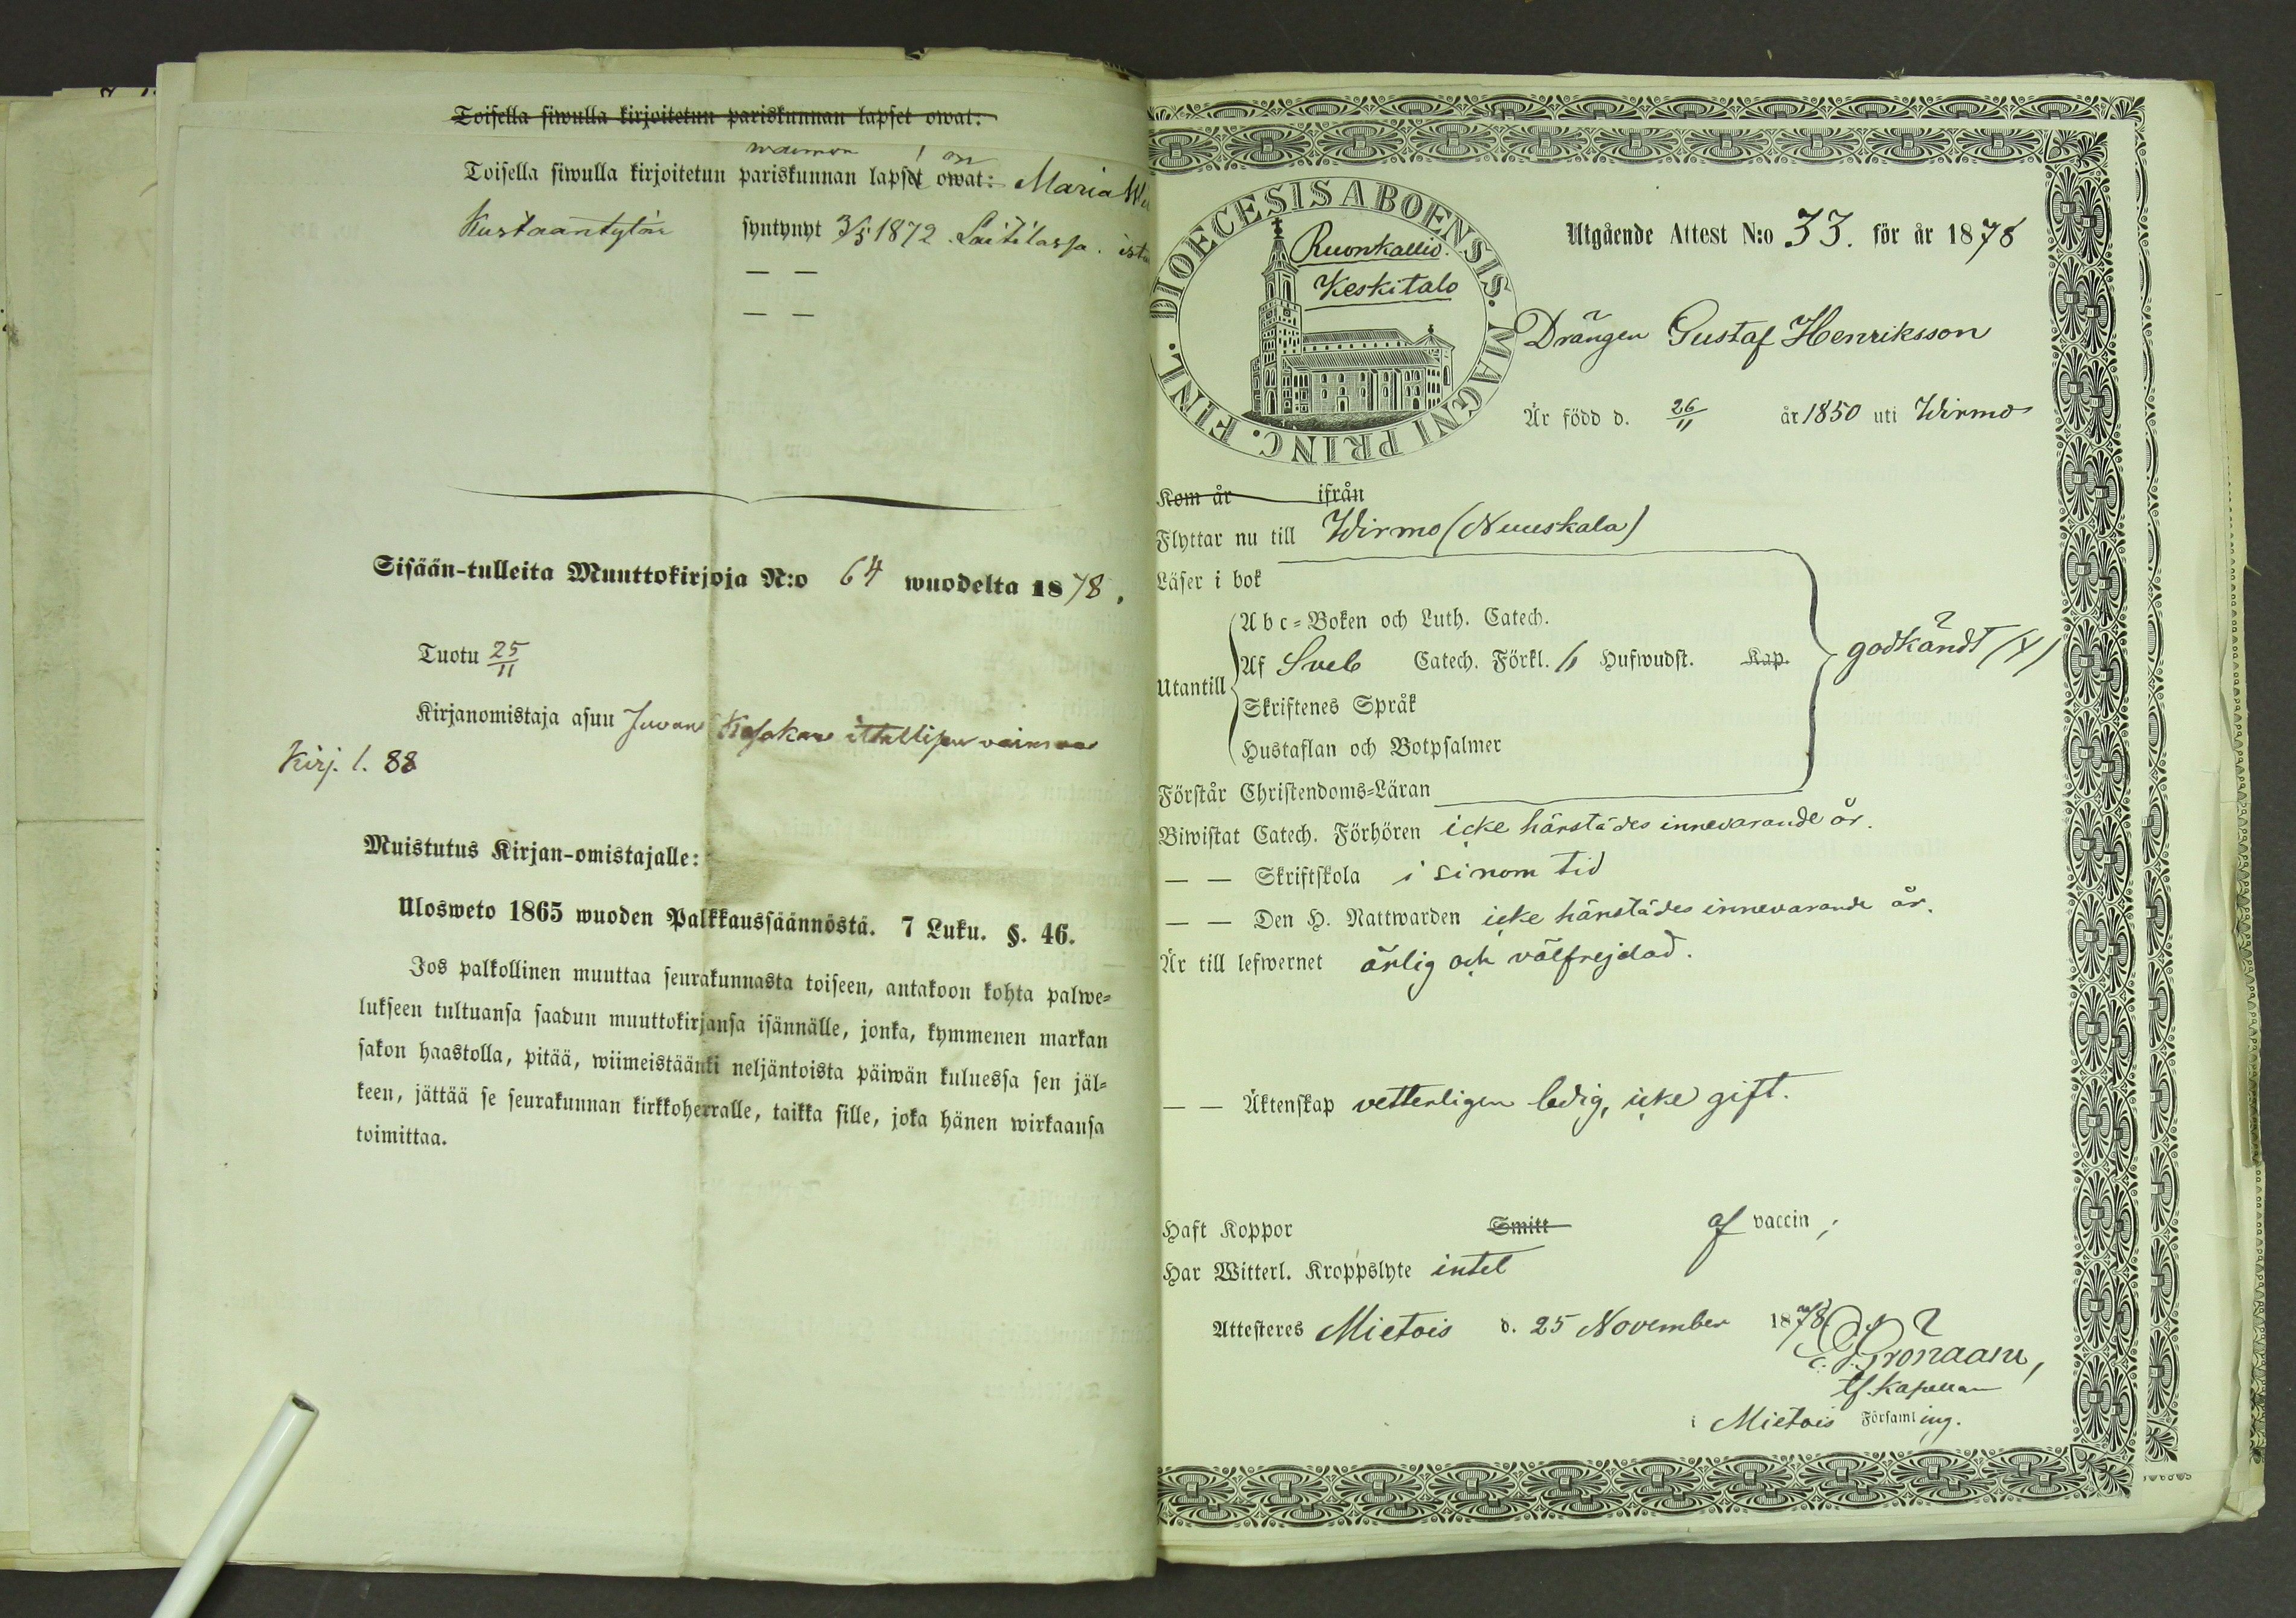 Toisella siwulla kirjoitetun pariskunnan lapset owat:
waimon on
Toisella siwulla kirjoitetun pariskunnan lapset owat: Maria
Kustaantytär syntynyt 3/5 1872. Laitilassa.
— —
— —
Sisään-tulleita Muuttokirjoja N:o 64 wuodelta 1878.
Tuotu 25/11
Kirjanomistaja asuu
Kirj. l. 88
Muistutus Kirjan-omistajalle:
Ulosweto 1865 wuoden Palkkaussäännöstä. 7 Luku. §. 46.
Jos palkollinen muuttaa seurakunnasta toiseen, antakoon kohta palwe-
lukseen tultuansa saadun muuttokirjansa isännälle, jonka, kymmenen markan
sakon haastolla, pitää, wiimeistäänki neljäntoista päiwän kuluessa sen jäl-
keen, jättää se seurakunnan kirkkoherralle, taikka sille, joka hänen wirkaansa
toimittaa.
DIOECESIS ABOENSIS. MAGNI PRINC. FINL.
Ruonkallio.
Keskitalo
Utgående Attest N:o 33. för år 1878
Drängen Gustaf Henriksson
Är född d. 26/11 år 1850 uti Wirmo
Kom år ifrån
Flyttar nu till Wirmo (Nuuskala)
Läser i bok
Abc-Boken och Luth. Catech.
Utantill Af Sveb Catech. Förkl. 6 Hufwudst. Kap. godkändt
Skriftenes Språk
Hustaflan och Botpsalmer
Förstår Christendoms-Läran
Biwistat Catech. Förhören icke härstädes innevarande år.
— — Skriftskola i sinom tid
— — Den H. Nattwarden icke härstädes innevarande år.
Är till lefwernet ärlig och välfrejdad.
— — Äktenskap vetterligen ledig, icke gift.
Haft Koppor Smitt af vaccin;
Har Witterl. Kroppslyte intet
Attesteres Mietois d. 25 November 1878.
Grönaam,
tf. Kapellan
i Mietois Församling.